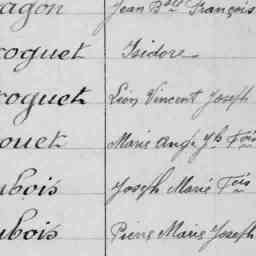 agon Jean Bte François
roquet Isidore
roquet Léon Vincent Joseph
ouet Marie Ange Jh Fois
ubois Joseph Marie Fois
ubois Pierre Marie Joseph